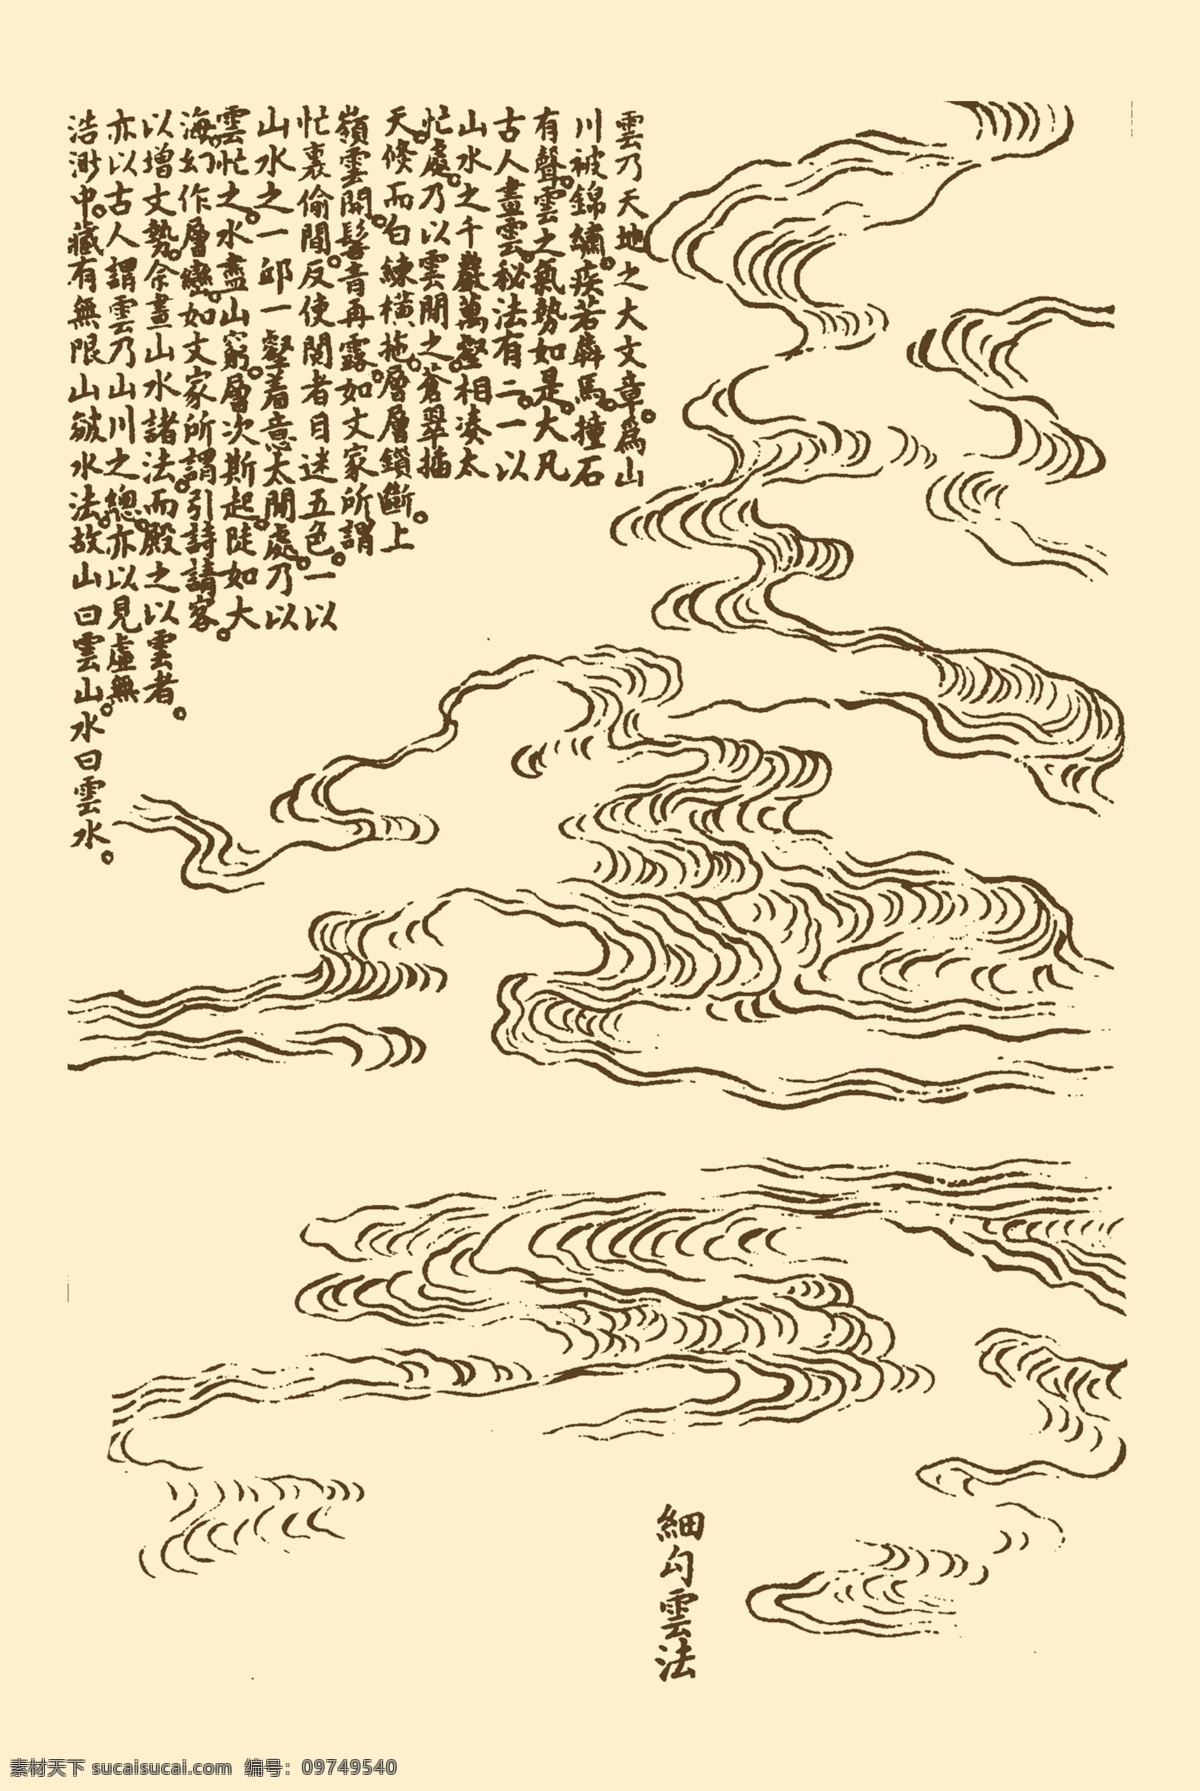 雲乃天地之大文章。為山
川被錦繡。疾若犇馬。撞石
有聲。雲之氣勢如是。大凡
古人畫雲。秘法有二。一以
山水之千巖萬壑相湊太
忙處。乃以雲閒之。蒼翠插
天倏而白練橫拖。層層鎖斷。上
嶺雲開。髻青再露。如文家所謂
忙裏偷閒。反使閱者目迷五色。一以
山水之一邱一壑着意太閒處。乃以
雲忙之。水盡山窮。層次斯起。陡如大
海。幻作層巒。如文家所謂引詩請客。
以增文勢。余畫山水諸法。而殿之以雲者。
亦以古人謂雲乃山川之總。亦以見虛無
浩渺中。藏有無限山皴水法。故山曰雲山。水曰雲水。
細勾雲法
素材天下 sucaisucai.com 编号：09749540